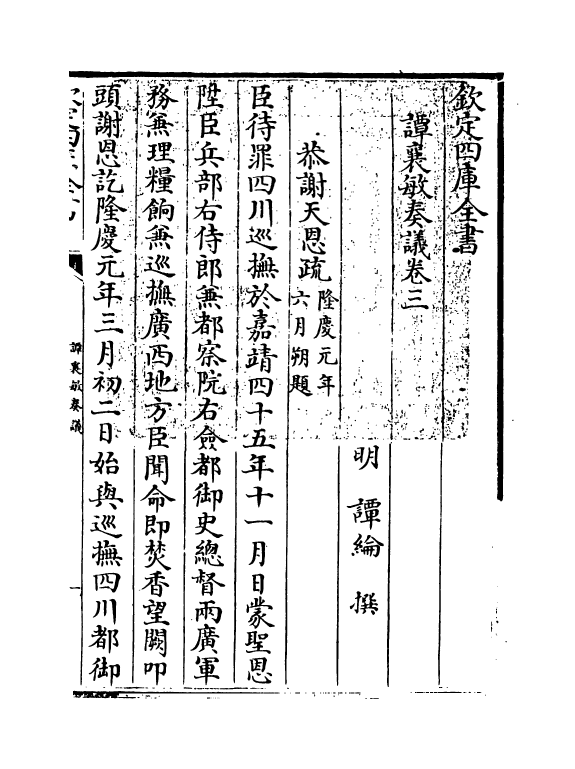 欽定四庫全書
譚襄敏奏議卷三
明 譚綸 撰
恭謝天恩疏隆慶元年六月朔題
臣待罪四川巡撫於嘉靖四十五年十一月日蒙聖恩
陞臣兵部右侍郎兼都察院右僉都御史總督兩廣軍
務兼理糧餉兼巡撫廣西地方臣聞命即焚香望闕叩
頭謝恩訖隆慶元年三月初二日始與巡撫四川都御
譚襄敏奏議
一